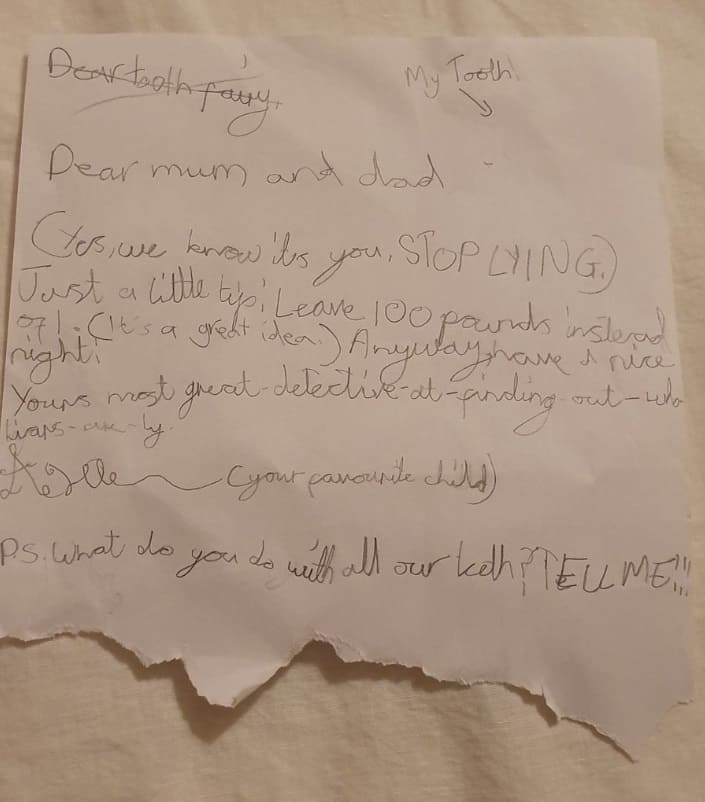 Dear tooth fairy,
My Tooth!
Dear mum and dad
(Yes, we know it's you, STOP LYING.)
Just a little tip! Leave 100 pounds instead
of 1. (It's a great idea.) Anyway, have a nice
night!
Yours most great-detective-at-finding-out-who
liars-are-ly.
(your favourite child)
P.S. What do you do with all our teeth? TELL ME!!!